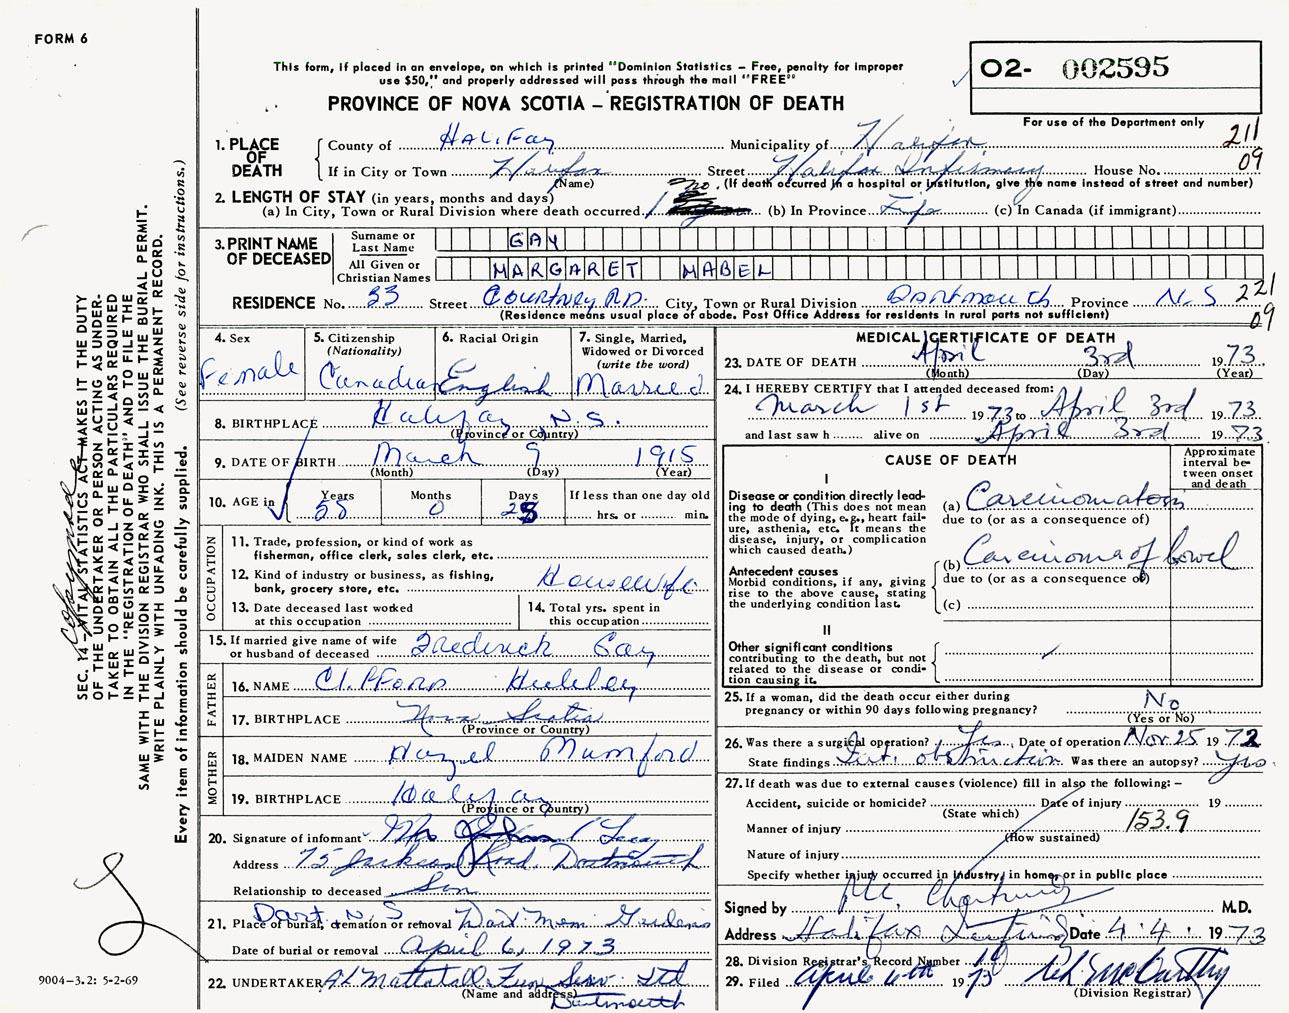 FORM 6
This form, if placed in an envelope, on which is printed "Dominion Statistics – Free, penalty for improper
use $50," and properly addressed will pass through the mail "FREE"
PROVINCE OF NOVA SCOTIA – REGISTRATION OF DEATH
O2- 002595
For use of the Department only
211
09
1. PLACE OF DEATH
County of Halifax Municipality of Halifax
If in City or Town Halifax Street Halifax Infirmary House No.
(Name) (If death occurred in a hospital or institution, give the name instead of street and number)
2. LENGTH OF STAY (in years, months and days)
(a) In City, Town or Rural Division where death occurred 1 mo. (b) In Province Life (c) In Canada (if immigrant)
3. PRINT NAME OF DECEASED
Surname or Last Name GAY
All Given or Christian Names MARGARET MABEL
RESIDENCE No. 33 Street Courtney RD. City, Town or Rural Division Dartmouth Province N.S
221
09
(Residence means usual place of abode. Post Office Address for residents in rural parts not sufficient)
4. Sex
Female
5. Citizenship (Nationality)
Canadian
6. Racial Origin
English
7. Single, Married, Widowed or Divorced (write the word)
Married
8. BIRTHPLACE Halifax, N.S.
(Province or Country)
9. DATE OF BIRTH March 9 1915
(Month) (Day) (Year)
10. AGE in Years 58 Months 0 Days 25 If less than one day old
hrs. or min.
OCCUPATION
11. Trade, profession, or kind of work as
fisherman, office clerk, sales clerk, etc.
12. Kind of industry or business, as fishing,
bank, grocery store, etc. Housewife
13. Date deceased last worked
at this occupation
14. Total yrs. spent in
this occupation
15. If married give name of wife
or husband of deceased Frederick Gay
FATHER
16. NAME Clifford
17. BIRTHPLACE Nova Scotia
(Province or Country)
MOTHER
18. MAIDEN NAME Hazel Mumford
19. BIRTHPLACE Halifax
(Province or Country)
20. Signature of informant Gay
Address 75 Jackson Road, Dartmouth
Relationship to deceased Son
Dart. N.S
21. Place of burial, cremation or removal Dart Mem Gardens
Date of burial or removal April 6, 1973
22. UNDERTAKER Mattatall Fun Serv Ltd
(Name and address) Dartmouth
MEDICAL CERTIFICATE OF DEATH
23. DATE OF DEATH April 3rd 1973
(Month) (Day) (Year)
24. I HEREBY CERTIFY that I attended deceased from:
March 1st 1973 to April 3rd 1973
and last saw h alive on April 3rd 1973
CAUSE OF DEATH
Approximate interval between onset and death
I
Disease or condition directly lead-
ing to death (This does not mean
the mode of dying, e.g., heart fail-
ure, asthenia, etc. It means the
disease, injury, or complication
which caused death.)
(a) Carcinomatosis
due to (or as a consequence of)
(b) Carcinoma of bowel
due to (or as a consequence of)
(c)
Antecedent causes
Morbid conditions, if any, giving
rise to the above cause, stating
the underlying condition last.
II
Other significant conditions
contributing to the death, but not
related to the disease or condi-
tion causing it.
25. If a woman, did the death occur either during
pregnancy or within 90 days following pregnancy? No
(Yes or No)
26. Was there a surgical operation? Yes Date of operation Nov 25 1972
State findings Int. obstruction Was there an autopsy? Yes
27. If death was due to external causes (violence) fill in also the following: –
Accident, suicide or homicide? Date of injury 19
(State which)
Manner of injury 153.9
(How sustained)
Nature of injury
Specify whether injury occurred in industry, in home, or in public place
Signed by M.D.
Address Halifax Infirmary Date 4.4. 1973
28. Division Registrar's Record Number
29. Filed April 6th 1973 McCarthy
(Division Registrar)
SEC. 14 – VITAL STATISTICS ACT MAKES IT THE DUTY
OF THE UNDERTAKER OR PERSON ACTING AS UNDER-
TAKER TO OBTAIN ALL THE PARTICULARS REQUIRED
IN THE "REGISTRATION OF DEATH" AND TO FILE THE
SAME WITH THE DIVISION REGISTRAR WHO SHALL ISSUE THE BURIAL PERMIT.
WRITE PLAINLY WITH UNFADING INK. THIS IS A PERMANENT RECORD.
Every item of information should be carefully supplied. (See reverse side for instructions.)
9004–3.2: 5-2-69